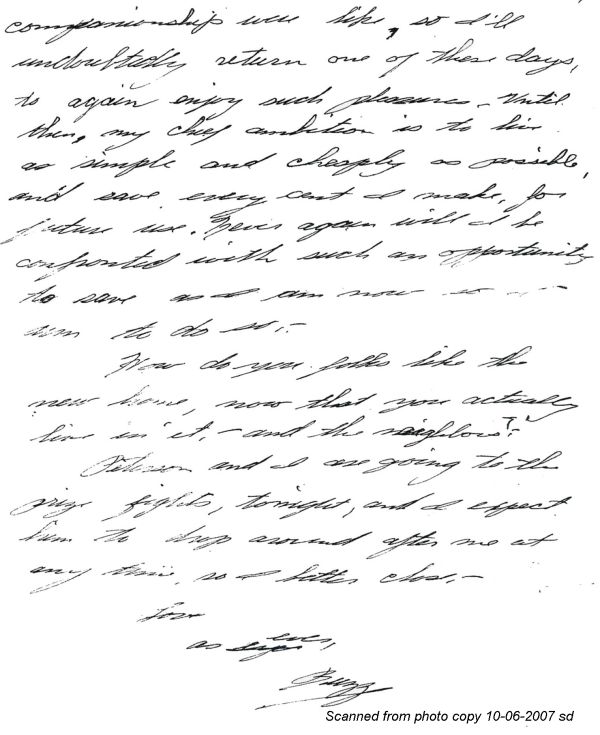 companionship were like, so I'll
undoubtedly return one of these days,
to again enjoy such pleasures. Until
then, my chief ambition is to live
as simple and cheaply as possible,
and save every cent I make, for
future use. Never again will I be
confronted with such an opportunity
to save as I am now so I
aim to do so.-
How do you folks like the
new home, now that you actually
live in it, - and the neighbors?
Peterson and I are going to the
prize fights, tonight, and I expect
him to drop around after me at
any time, so I better close.-
Love
as ever,
Buzz
Scanned from photo copy 10-06-2007 sd